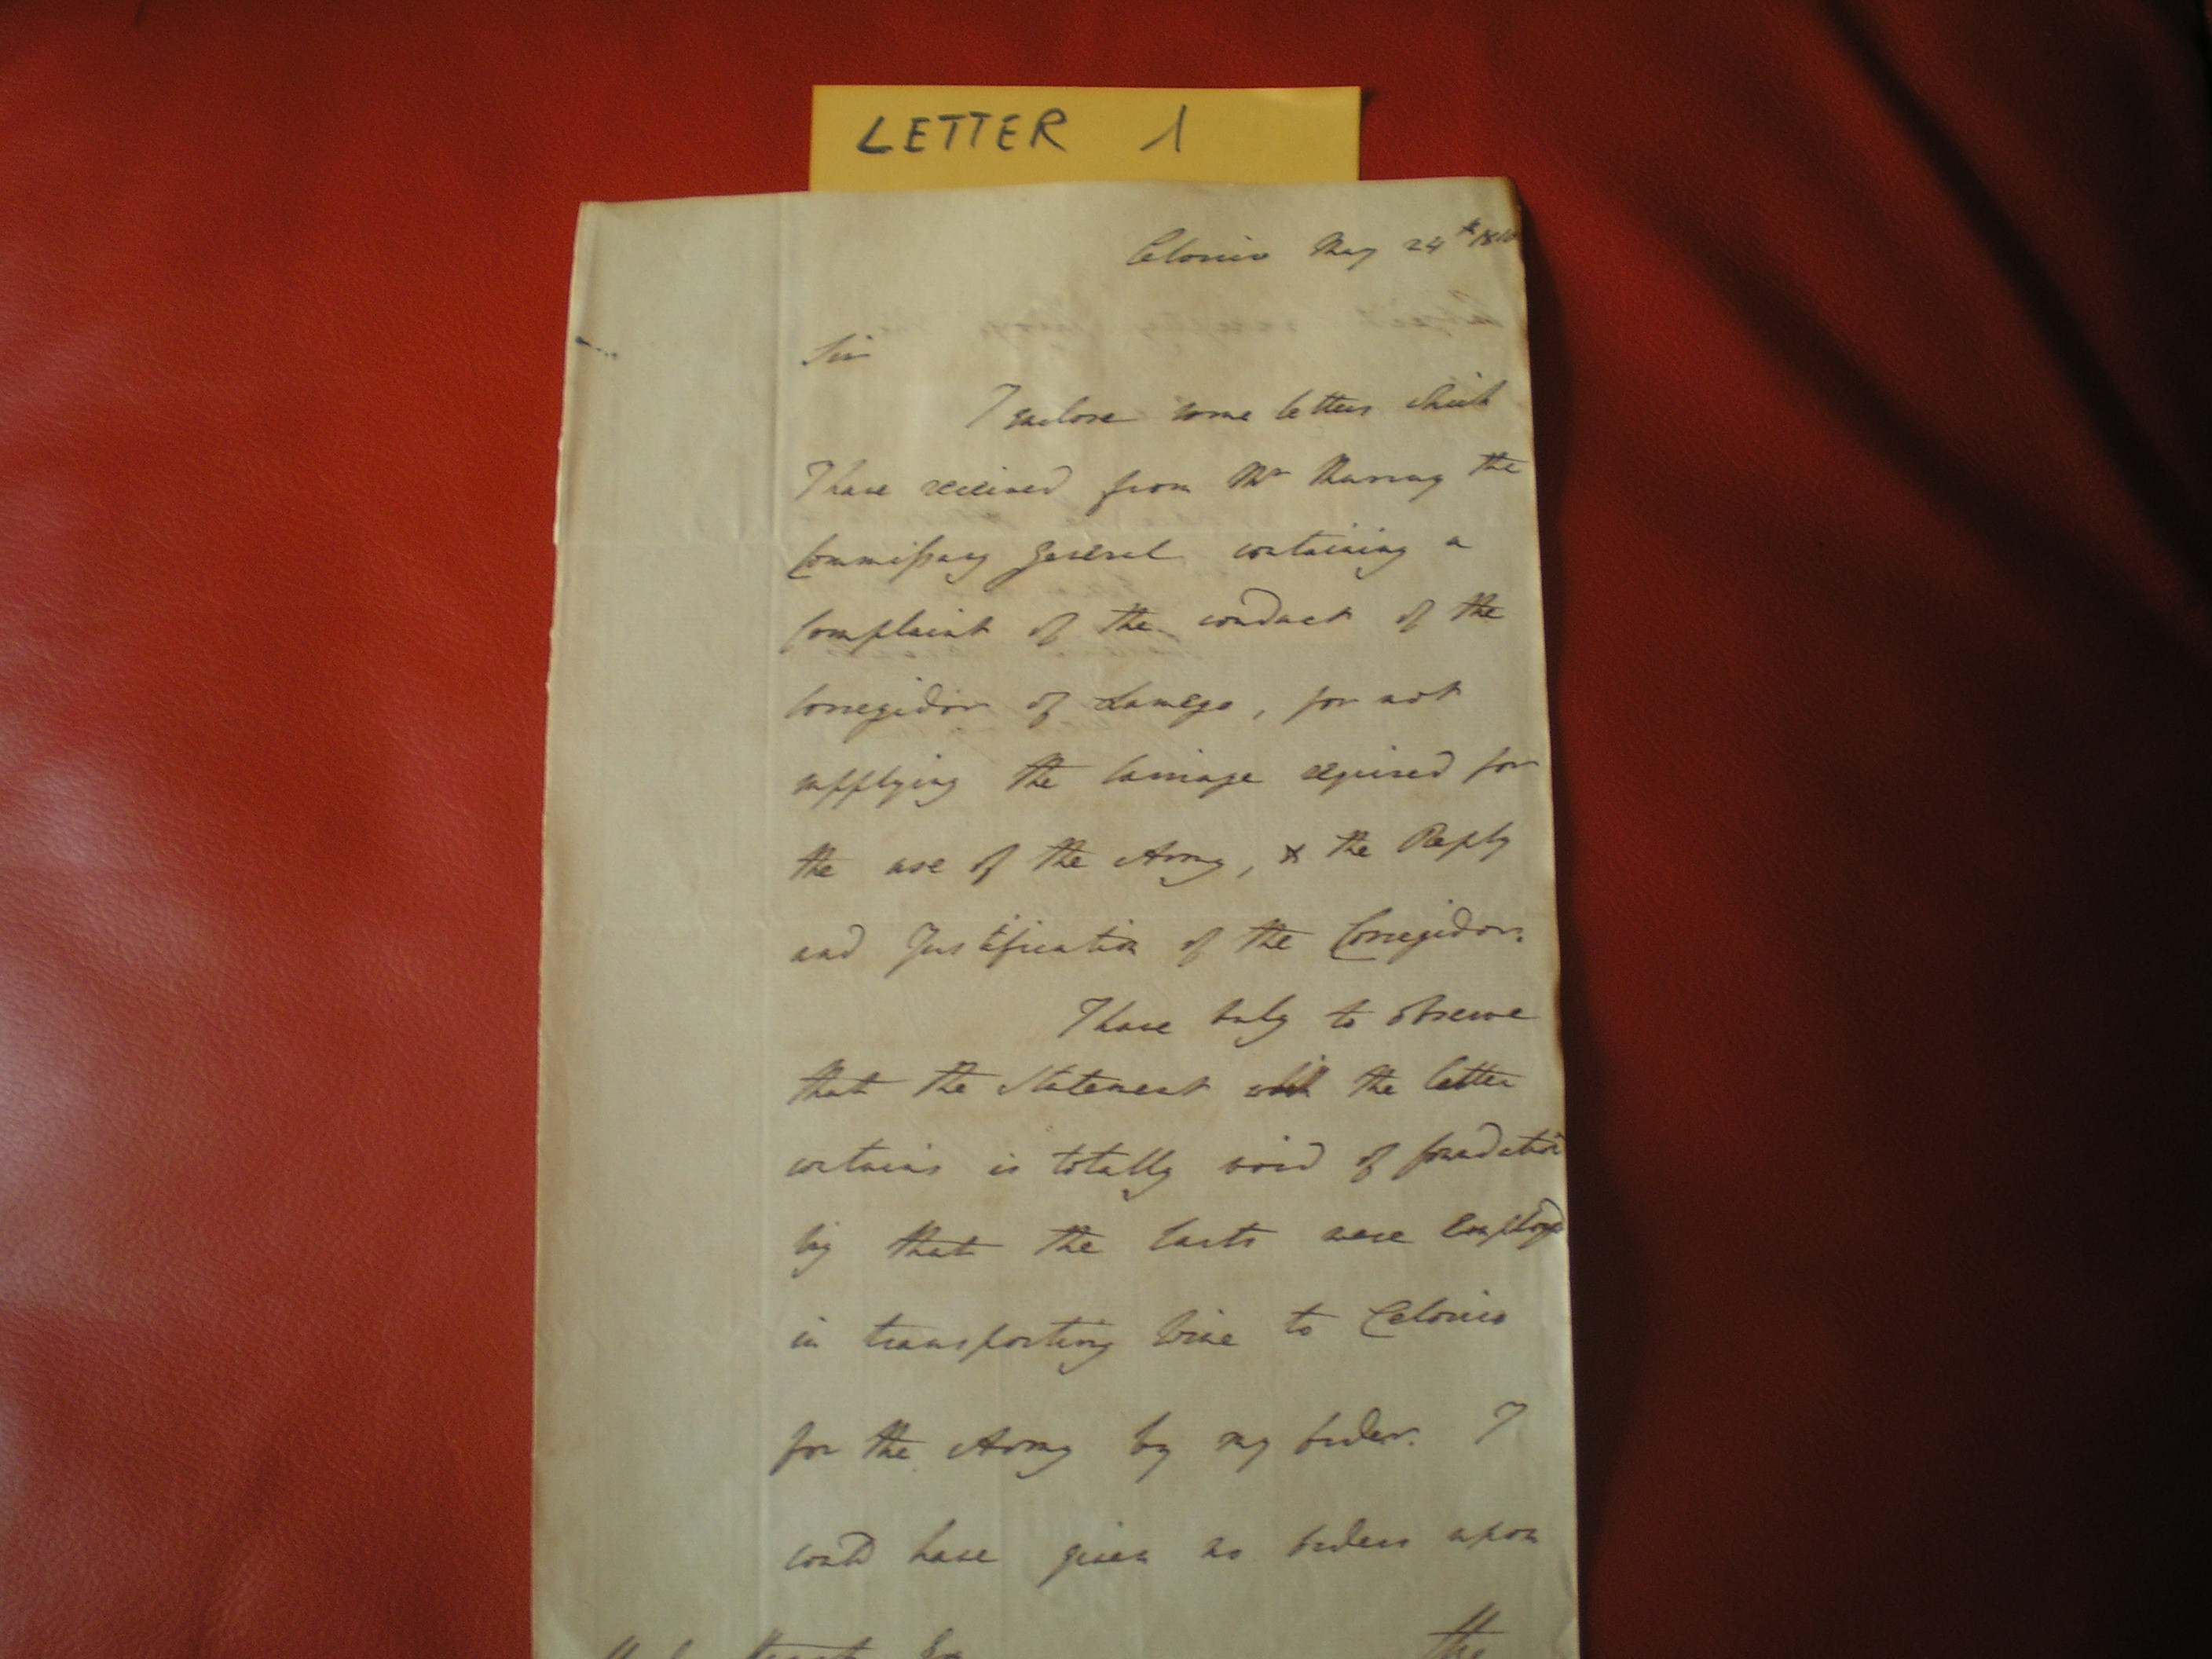 LETTER 1
Celorico May 24th 1810
Sir
I enclose some letters which
I have received from Mr Murray the
Commissary General containing a
Complaint of the conduct of the
Corregidor of Lamego, for not
supplying the Carriage required for
the use of the Army, & the Reply
and Justification of the Corregidor.
I have only to observe
that the Statement which the letter
contains is totally void of foundation
viz that the Carts were Employd
in transporting Wine to Celorico
for the Army by my Order. I
could have given no Orders upon
the